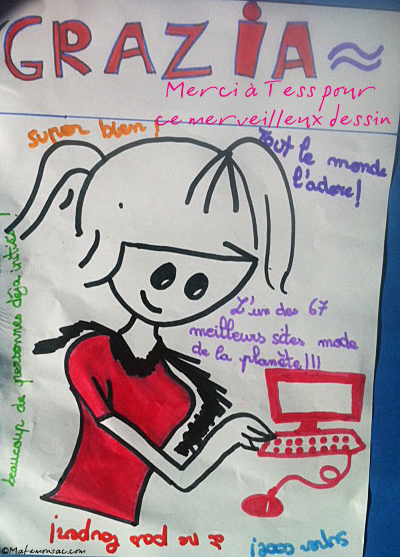 GRAZIA
Merci à Tess pour
ce merveilleux dessin
super bien !
Tout le monde
l'adore!
L'un des 67
meilleurs sites mode
de la planète!!!
beaucoup de personnes déja initiées !
à ne pas louper!
super cool!
©Matemonsac.com